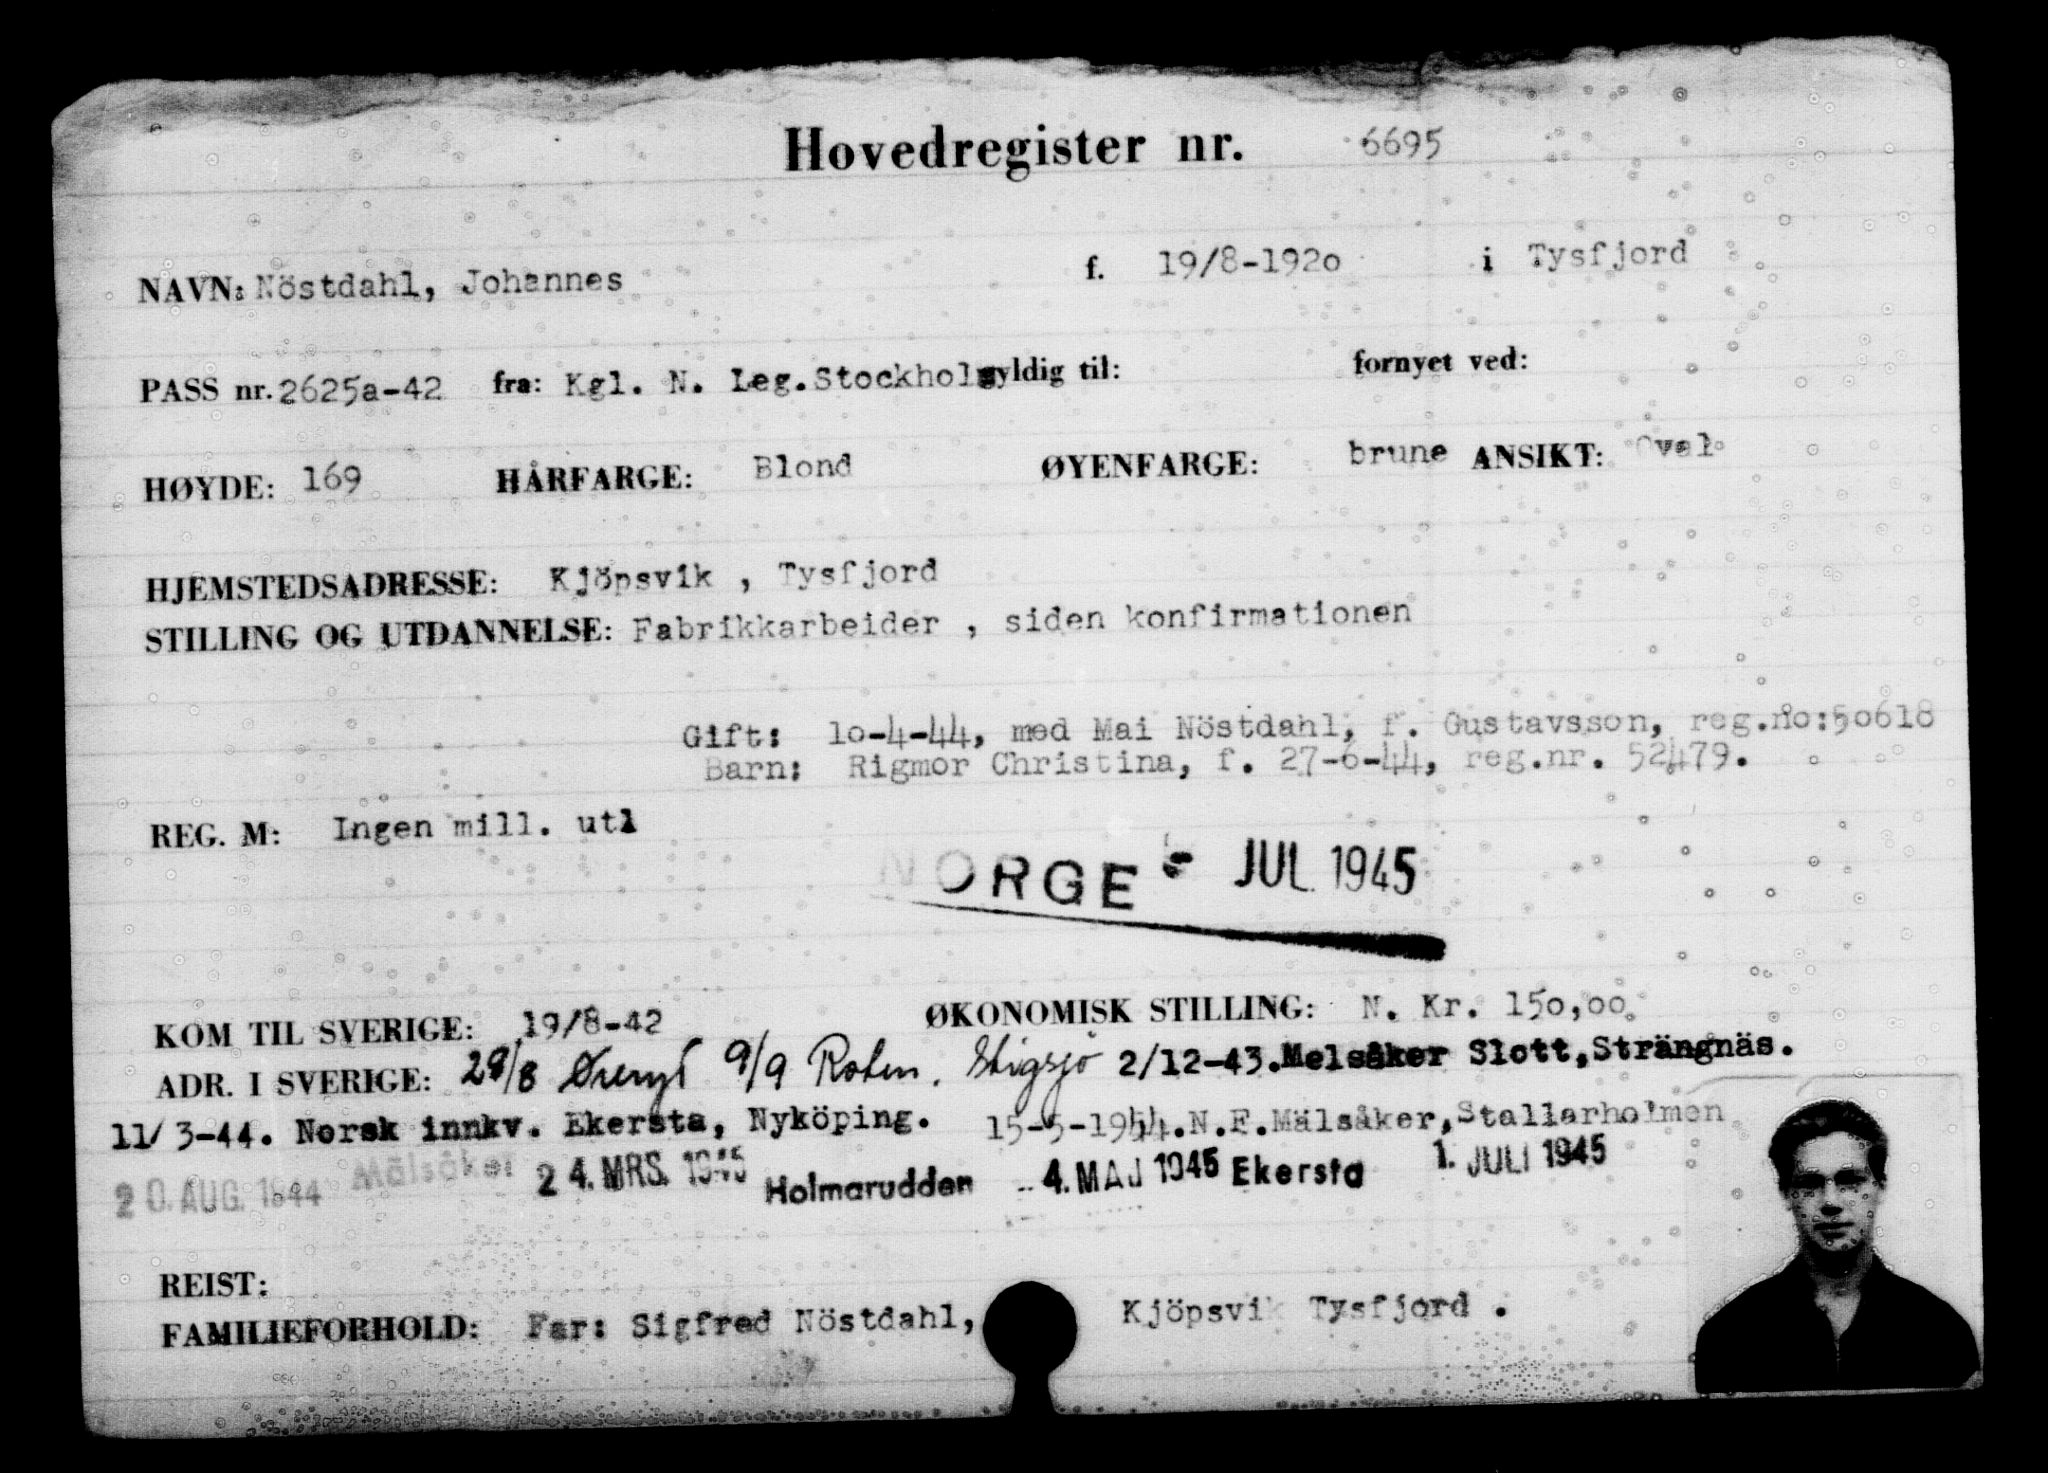 Hovedregister nr. 6695
NAVN: Nöstdahl, Johannes f. 19/8-192o i Tysfjord
PASS nr. 2625a-42 fra: Kgl. N. Leg. Stockholm gyldig til: fornyet ved:
HØYDE: 169 HÅRFARGE: Blond ØYENFARGE: brune ANSIKT: Oval
HJEMSTEDSADRESSE: Kjöpsvik , Tysfjord
STILLING OG UTDANNELSE: Fabrikkarbeider , siden konfirmationen
Gift: 1o-4-44, med Mai Nöstdahl, f. Gustavsson, reg.no:5o618
Barn: Rigmor Christina, f. 27-6-44, reg.nr. 52479.
REG. M: Ingen mill. utl
NORGE 5 JUL. 1945
KOM TIL SVERIGE: 19/8-42 ØKONOMISK STILLING: N. Kr. 15o,oo.
ADR. I SVERIGE: 28/8 Øreryd 9/9 Roten, Stigsjö 2/12-43. Melsåker Slott, Strängnäs.
11/3-44. Norsk innkv. Ekersta, Nyköping. 15-5-1944. N.F. Mälsåker, Stallarholmen
20. AUG. 1944 Mälsåker 24. MRS. 1945 Holmarudden 4. MAJ 1945 Ekersta 1. JULI 1945
REIST:
FAMILIEFORHOLD: Far: Sigfred Nöstdahl, Kjöpsvik Tysfjord .